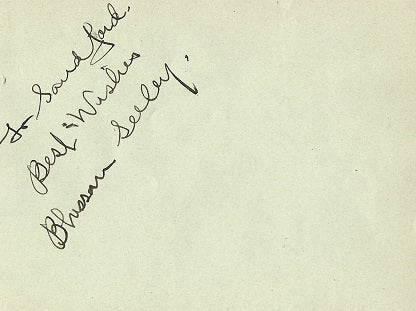 To Sandford.
Best Wishes
Blossom Seeley.